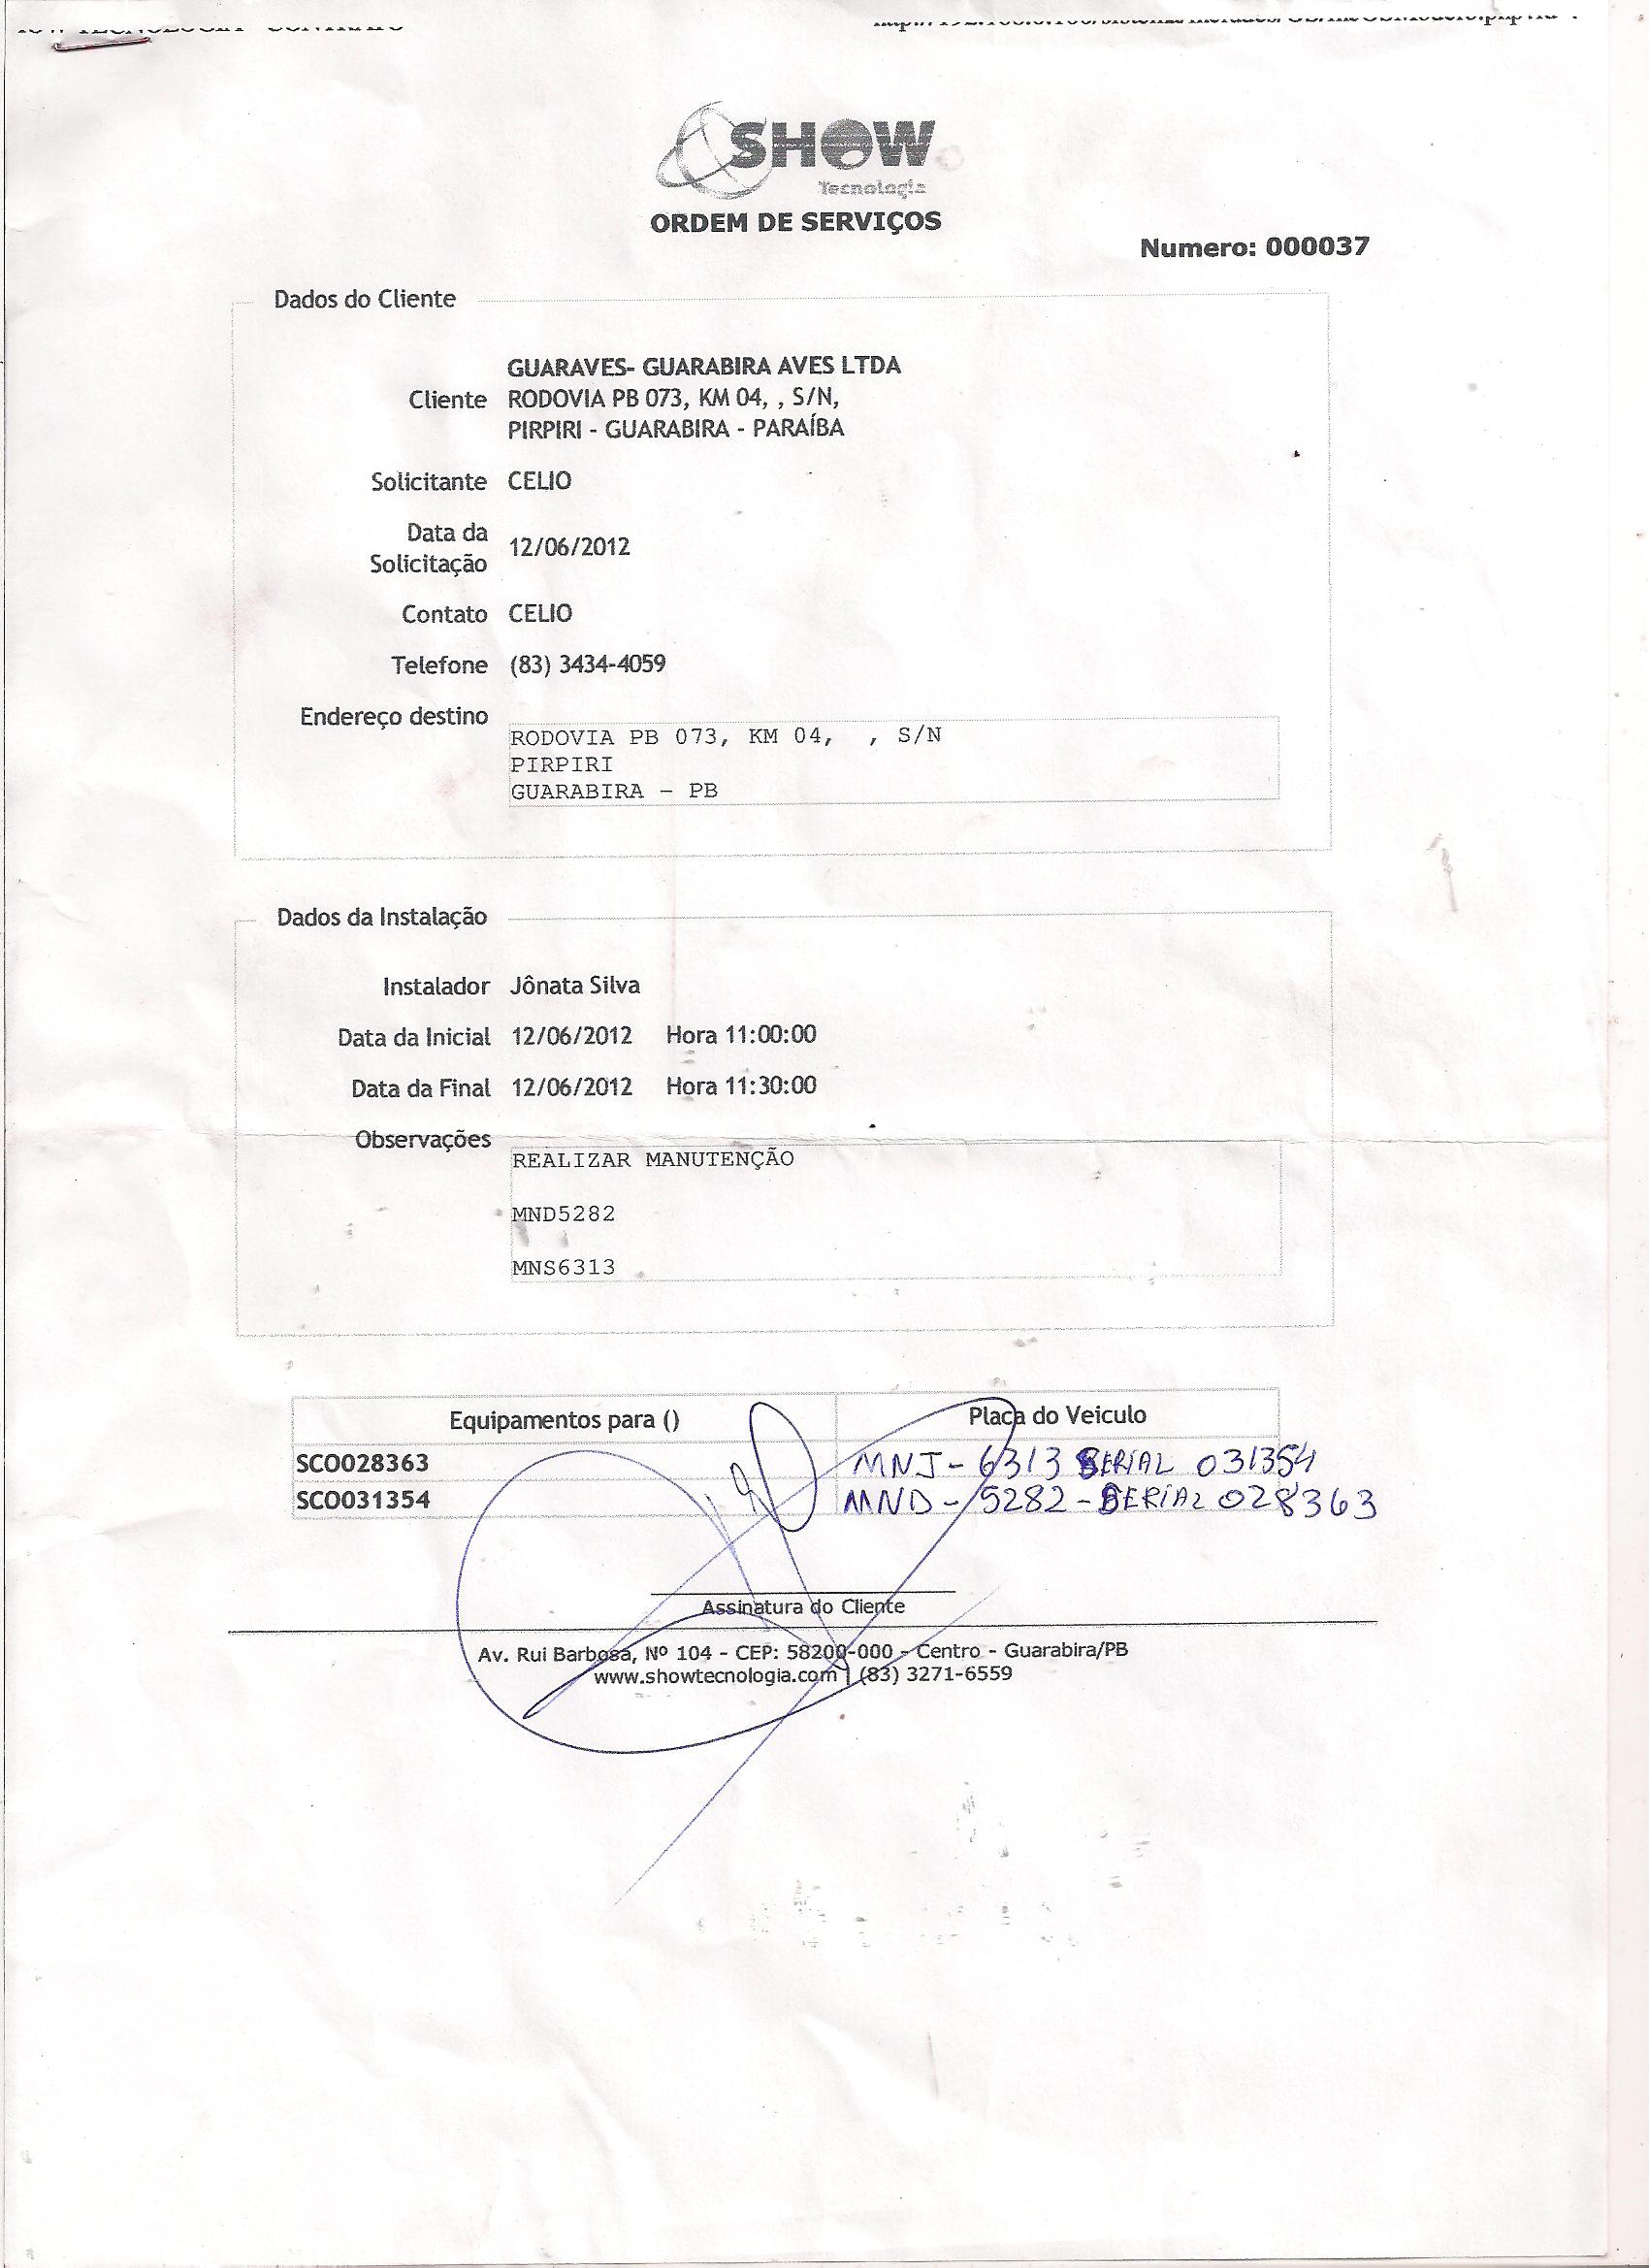 SHOW
Tecnologia
ORDEM DE SERVIÇOS
Numero: 000037
Dados do Cliente
GUARAVES- GUARABIRA AVES LTDA
Cliente RODOVIA PB 073, KM 04, , S/N,
PIRPIRI - GUARABIRA - PARAÍBA
Solicitante CELIO
Data da
Solicitação 12/06/2012
Contato CELIO
Telefone (83) 3434-4059
Endereço destino
RODOVIA PB 073, KM 04, , S/N
PIRPIRI
GUARABIRA - PB
Dados da Instalação
Instalador Jônata Silva
Data da Inicial 12/06/2012 Hora 11:00:00
Data da Final 12/06/2012 Hora 11:30:00
Observações
REALIZAR MANUTENÇÃO
MND5282
MNS6313
Equipamentos para () Placa do Veiculo
SCO028363 MNJ-6313 SERIAL 031354
SCO031354 MND-5282-SERIAL 028363
Assinatura do Cliente
Av. Rui Barbosa, Nº 104 - CEP: 58200-000 - Centro - Guarabira/PB
www.showtecnologia.com | (83) 3271-6559